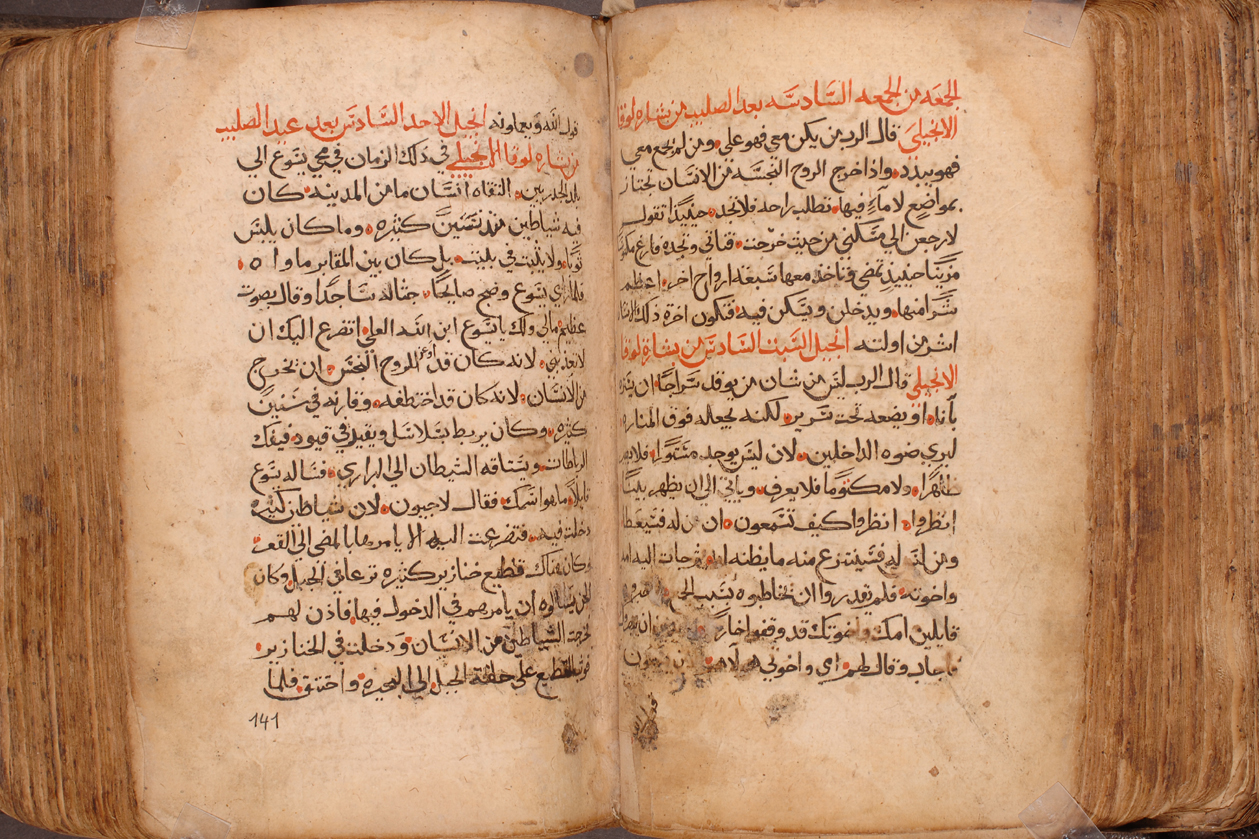 الجمعه من الجمعه السادسه بعد الصليب من بشاره لوقا
الانجيلي قال الرب من يكن معي فهو علي ومن لم يجمع معي
فهو يبذر واذا خرج الروح النجسه من الانسان تجتاز
بمواضع لا ماء فيها تطلب راحه فلا تجد حينيذا تقول
لارجعن الي مسكني من حيث خرجت فتاتي وتجده فارغ
مزينا حينيذ تمضي فتاخذ معها سبعة ارواح اخر اعظم
شرا منها ويدخلن ويسكن فيه فتكون اخرة ذلك الانسان
اشر من اولته انجيل السبت السادس من بشارة لوقا
الانجيلي قال الرب ليس من شان من يوقد سراجا ان يستره
بآناء او يضعه تحت سرير لكنه يجعله فوق المناره
ليري ضوه الداخلين لان ليس يوجد مستورا فلا يصير
ظاهرا ولا مكتوما فلا يعرف وياتي الي ان يظهر بينا
انظروا انظروا كيف تسمعون ان من له فسيعطا
ومن ليس له فسينتزع منه ما يظنه له وجات اليه امه
واخوته فلم يقدروا ان يخاطبوه بسبب الجمع
قايلين امك واخوتك قد وقفوا خارج
فاجاب وقال لهم امي واخوتي هولاء
قول الله ويعملونه انجيل الاحد السادس بعد عيد الصليب
من بشاره لوقا الانجيلي في ذلك الزمان في مجي يسوع الي
بلد الجدريين التقاه انسان ما من المدينه كان
فيه شياطين منذ سنين كثيره وما كان يلبس
ثوبا ولا يلبث في بيت بل كان بين المقابر ماواه
فلما راي يسوع وضج صايحا جثا له ساجدا وقال بصوت
عظيم مالي ولك يا يسوع ابن الله العلي اتضرع اليك ان
لا تعذبني لانه كان قد امر الروح النجس ان تخرج
من الانسان لانه كان قد اختطفه وقارنه في سنين
كثيره وكان يربط بسلاسل ويقيد في قيود فيفك
الرباطات ويساقه الشيطان الي البراري فساله يسوع
قايلا ما هو اسمك فقال لاجيون لان شياطين كثيره
دخلت فيه فتضرعت اليه الا يامرها بالمضي الي القعر
وكان هناك قطيع خنازير كثيره ترعا في الجبل وكان
يسالوه ان يامرهم في الدخول فيها فاذن لهم
فخرجت الشياطين من الانسان ودخلت في الخنازير
القطيع علي حافة الجبل الي البحيره واختنق فلما
141